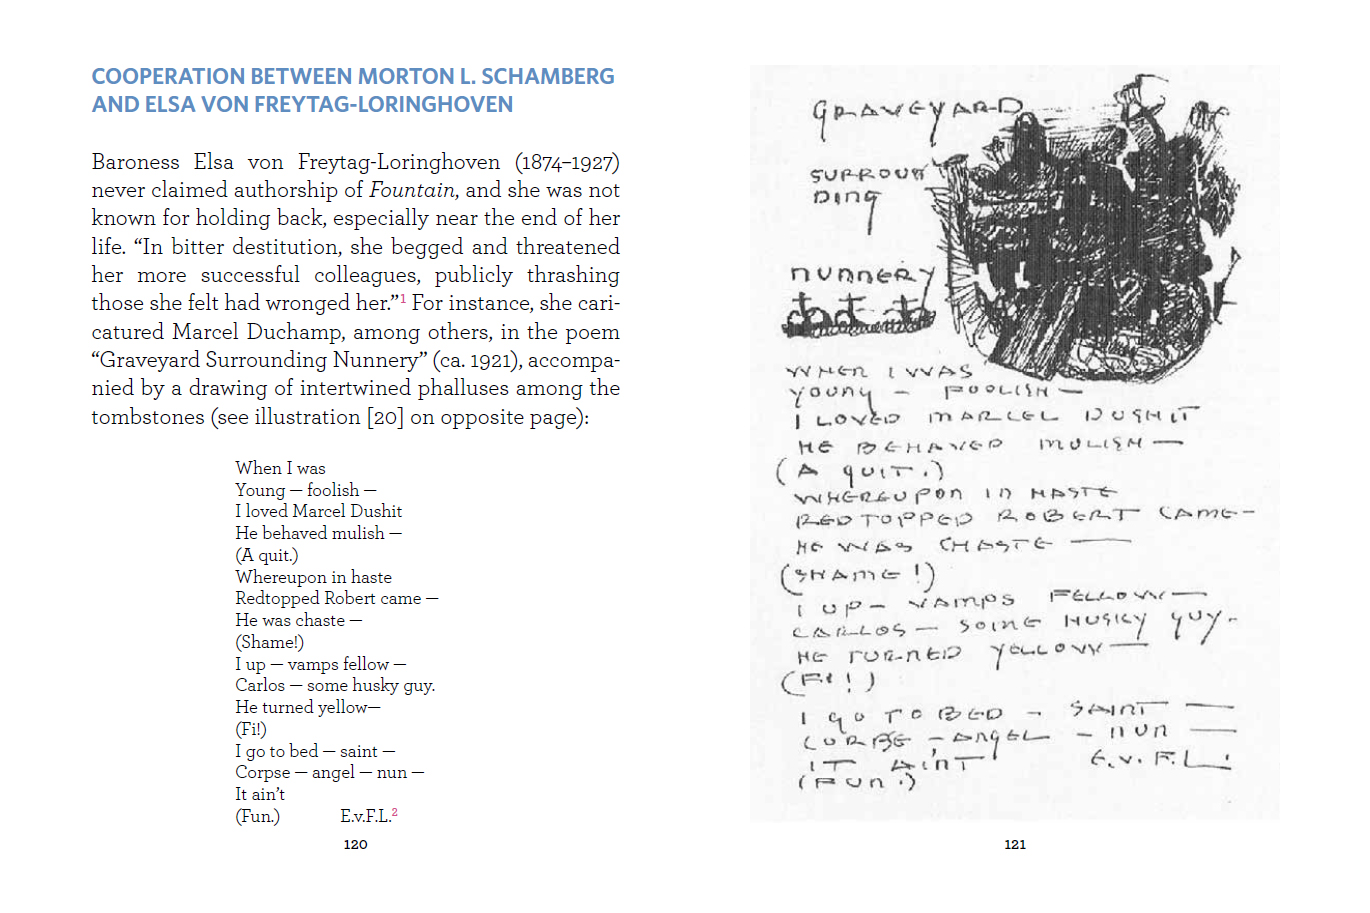 COOPERATION BETWEEN MORTON L. SCHAMBERG
AND ELSA VON FREYTAG-LORINGHOVEN
Baroness Elsa von Freytag-Loringhoven (1874–1927)
never claimed authorship of Fountain, and she was not
known for holding back, especially near the end of her
life. “In bitter destitution, she begged and threatened
her more successful colleagues, publicly thrashing
those she felt had wronged her.”1 For instance, she cari-
catured Marcel Duchamp, among others, in the poem
“Graveyard Surrounding Nunnery” (ca. 1921), accompa-
nied by a drawing of intertwined phalluses among the
tombstones (see illustration [20] on opposite page):
When I was
Young — foolish —
I loved Marcel Dushit
He behaved mulish —
(A quit.)
Whereupon in haste
Redtopped Robert came —
He was chaste —
(Shame!)
I up — vamps fellow —
Carlos — some husky guy.
He turned yellow—
(Fi!)
I go to bed — saint —
Corpse — angel — nun —
It ain’t
(Fun.) E.v.F.L.2
120
GRAVEYARD
SURROUN
DING
NUNNERY
WHEN I WAS
YOUNG — FOOLISH —
I LOVED MARCEL DUSHIT
HE BEHAVED MULISH —
(A QUIT.)
WHEREUPON IN HASTE
REDTOPPED ROBERT CAME —
HE WAS CHASTE —
(SHAME!)
I UP — VAMPS FELLOW —
CARLOS — SOME HUSKY GUY.
HE TURNED YELLOW —
(FI!)
I GO TO BED — SAINT —
CORPSE — ANGEL — NUN —
IT AIN'T E.v.F.L.
(FUN.)
121